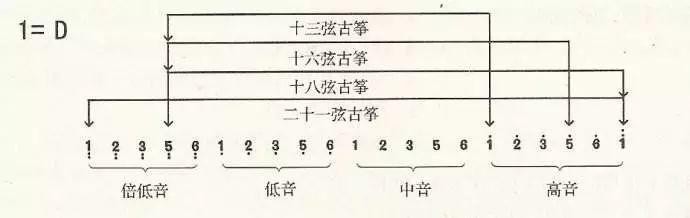 1= D
十三弦古筝
十六弦古筝
十八弦古筝
二十一弦古筝
1 2 3 5 6 1 2 3 5 6 1 2 3 5 6 1 2 3 5 6 1
倍低音 低音 中音 高音